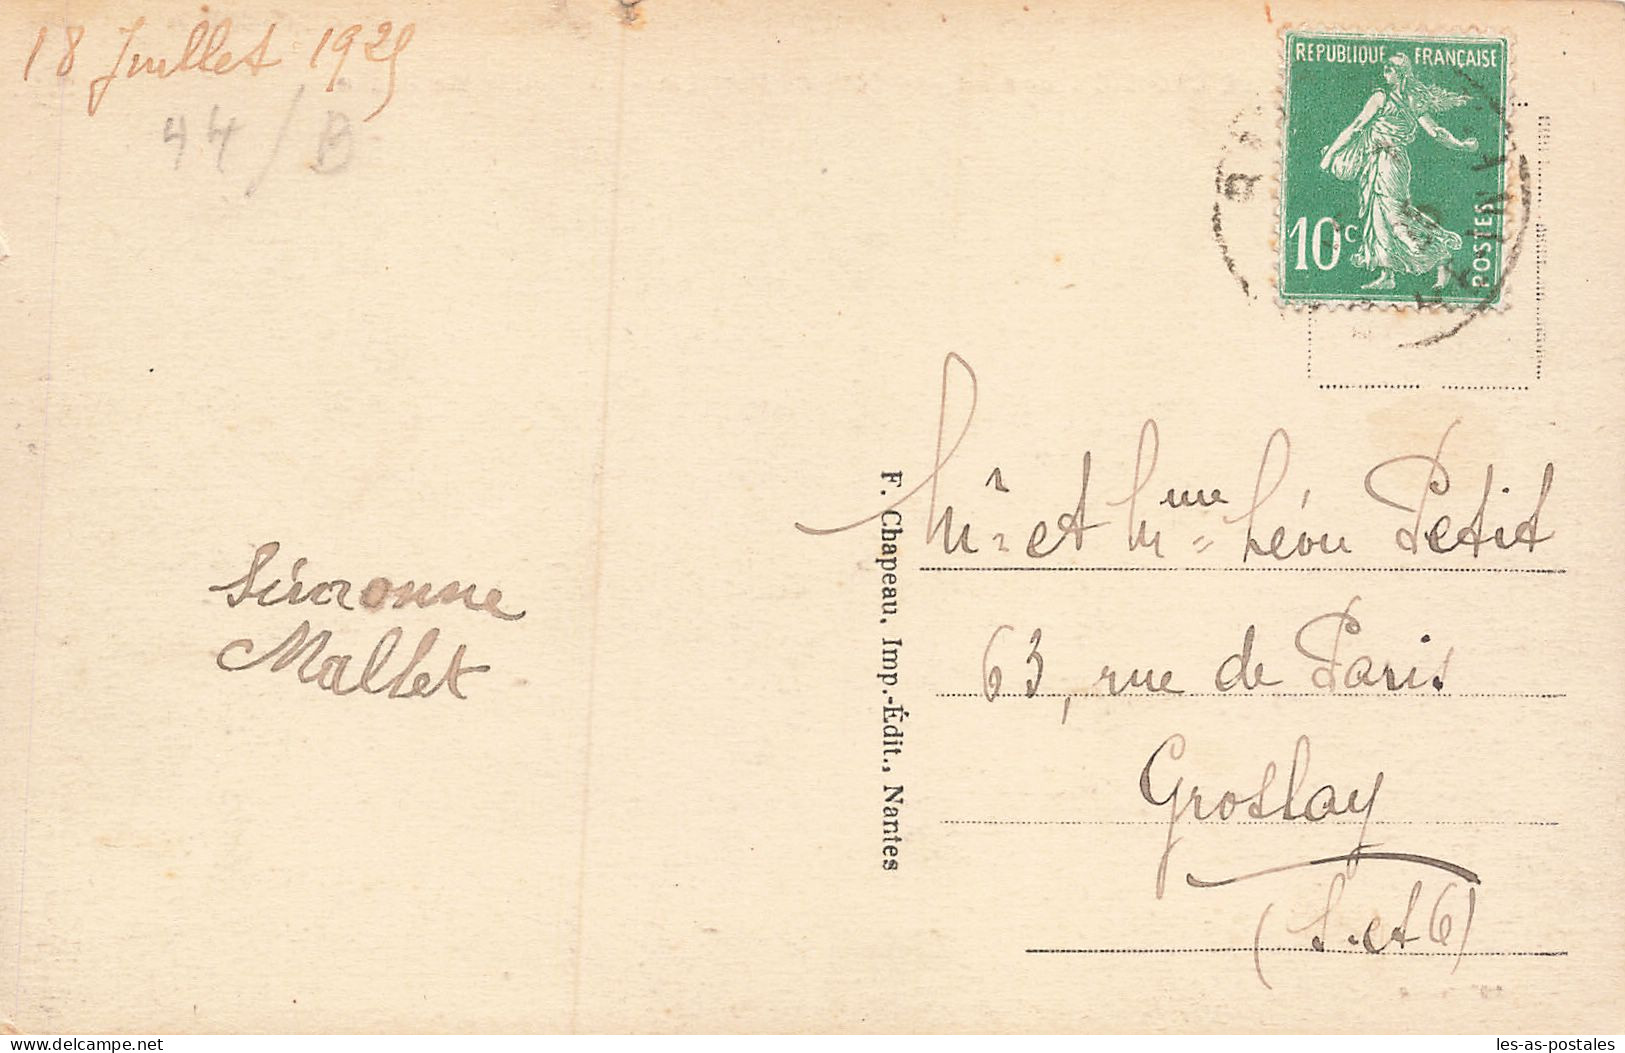 18 Juillet 1925
44/B
REPUBLIQUE FRANÇAISE
10c
POSTES
F. Chapeau, Imp.-Édit., Nantes
Mr et Mme Léon Petit
63, rue de Paris
Groslay
(S. et O)
Simonne
Mallet
Delcampe.net
les-as-postales